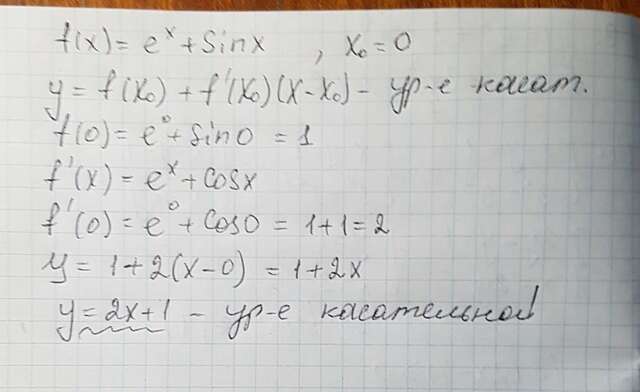 f(x) = eˣ + Sinx , x₀ = 0
y = f(x₀) + f'(x₀)(x-x₀) - ур-е касат.
f(0) = e⁰ + sin0 = 1
f'(x) = eˣ + cosx
f'(0) = e⁰ + cos0 = 1+1=2
y = 1+2(x-0) = 1+2x
y=2x+1 - ур-е касательной